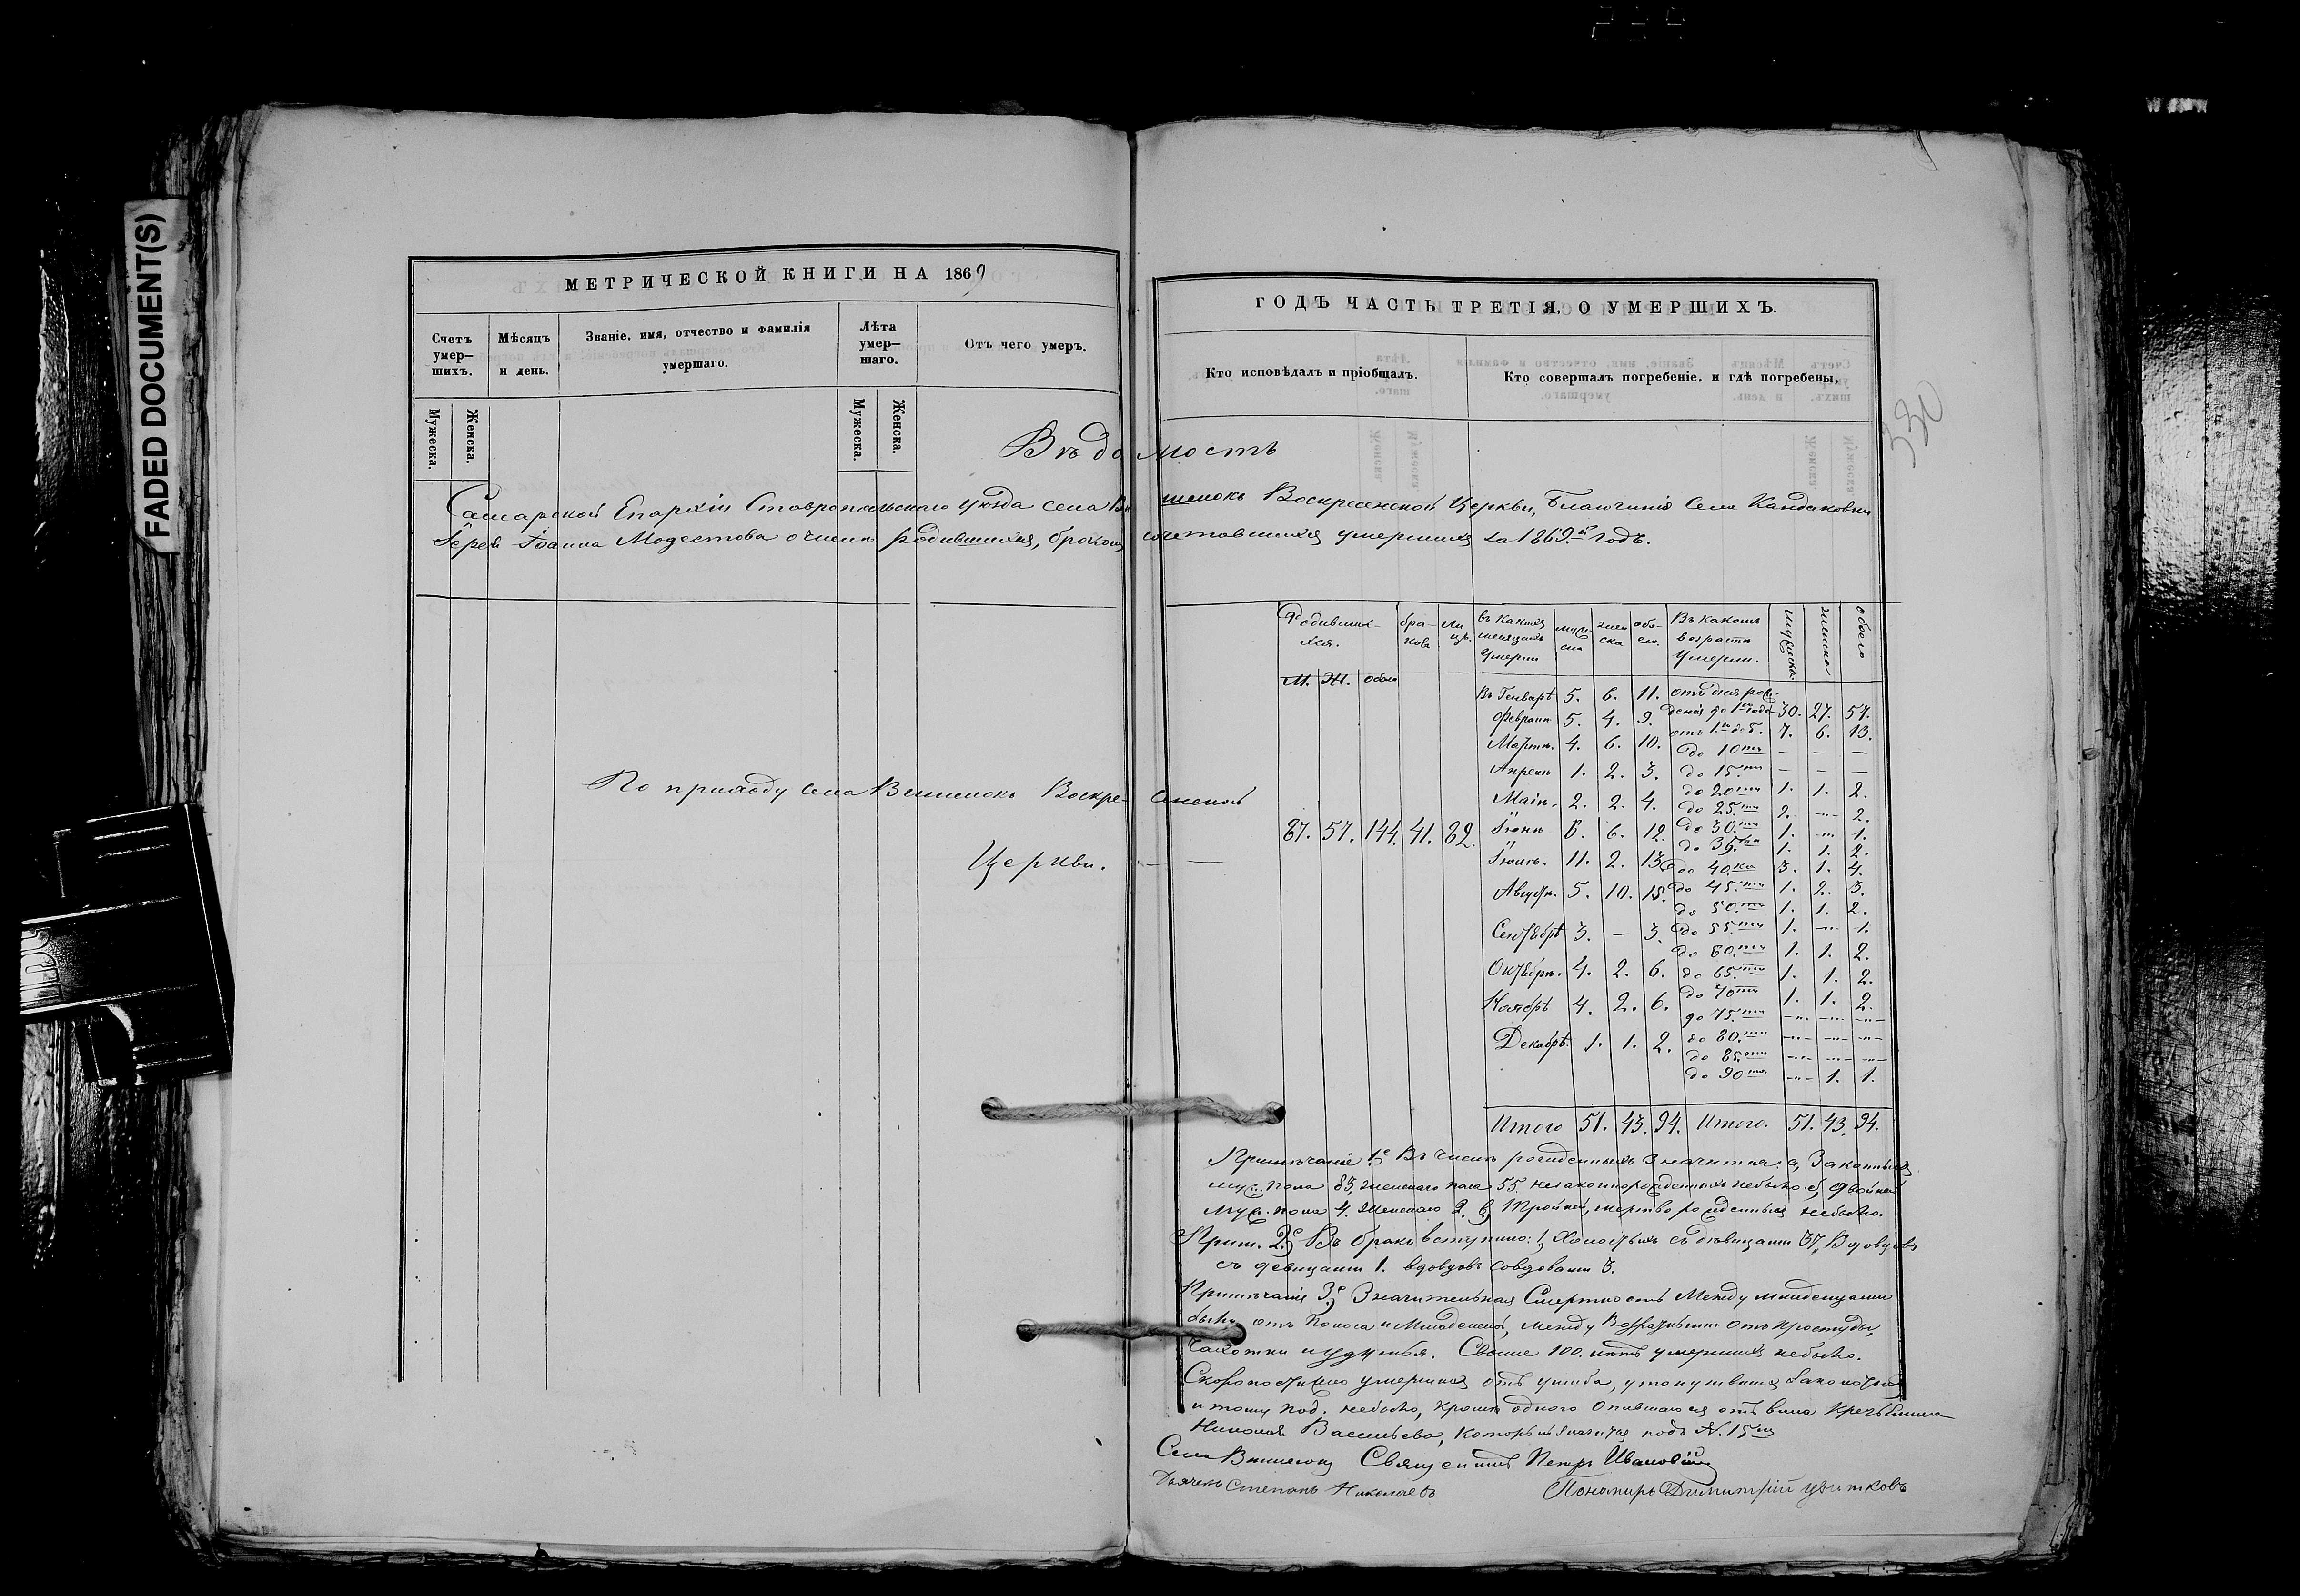 FADED DOCUMENT(S)
МЕТРИЧЕСКОЙ КНИГИ НА 1869
Счетъ умер-шихъ.
Мѣсяцъ и день.
Званіе, имя, отчество и фамилія умершаго.
Лѣта умер-шаго.
Отъ чего умеръ.
Мужеска.
Женска.
Мужеска.
Женска.
ГОДЪ ЧАСТЬ ТРЕТІЯ, О УМЕРШИХЪ.
Кто исповѣдалъ и пріобщалъ.
Кто совершалъ погребеніе, и гдѣ погребены,
330
Вѣдомость
Самарской Епархіи Ставропольскаго уѣзда села Воскресенской Церкви, благочинія Села Кандаковки
Іерея Іоанна Модестова о числѣ родившихся, бракомъ сочетавшихся умершихъ за 1869.й годъ.
Родивших-хся.
бра-ковъ
Ли-цъ.
въ какихъ мѣсяцахъ умерли
муж-ска
жен-ска
обо-его.
Въ какомъ возрастѣ умерли.
мужска.
женска
обоего
М. Ж. обоего
Въ Генварѣ 5. 6. 11. отъ дня рож-денія до 1го года 30. 27. 57.
Февралѣ 5. 4. 9. отъ 1го до 5. 7. 6. 13.
Мартѣ. 4. 6. 10. до 10ти — — —
Апрелѣ 1. 2. 3. до 15.ти — — —
Маіѣ. 2. 2. 4. до 20ти 1. 1. 2.
до 25.ти 2. — 2.
По приходу села Воскре-сенской
Церкви. — —
87. 57. 144. 41. 82.
Іюнѣ 6. 6. 12. до 30.ти 1. — 1.
до 35.ти 1. 1. 2.
Іюлѣ. 11. 2. 13. до 40.ка 3. 1. 4.
Августѣ. 5. 10. 15. до 45.ти 1. 2. 3.
до 50.ти 1. 1. 2.
Сентябрѣ 3. — 3. до 55.ти 1. — 1.
до 60ти 1. 1. 2.
Октябрѣ. 4. 2. 6. до 65.ти 1. 1. 2.
Ноябрѣ 4. 2. 6. до 70ти 1. 1. 2.
до 75.ти — — —
Декабрѣ. 1. 1. 2. до 80.ти — — —
до 85.ти — — —
до 90то. — 1. 1.
Итого 51. 43. 94. Итого. 51. 43. 94.
Примѣчаніе 1.е Въ числѣ рожденныхъ значится: а, Законныхъ
муж. пола 83, женскаго пола 55. незаконнорожденныхъ небыло. б, двойней
муж. пола 4. женскаго 2. в, Тройней, мертворожденныхъ небыло.
Прим. 2.е Въ бракъ вступило: 1, Холостыхъ съ дѣвицами 37, Вдовцовъ
съ девицами 1. вдовцовъ совдовами 3.
Примѣчанія 3.е Значительная Смертность Между младенцами
была отъ поноса и Младенской, между Возрастными отъ простуды,
Чахотки и удушья. Свыше 100. лѣтъ умершихъ небыло.
Скоропостижно умершихъ отъ ушиба, утонувшихъ
и тому под. небыло, кромѣ одного опившагося отъ вина крестьянина
Николая Васильева, который значится подъ №. 15 м
Села Священникъ Петръ Ивановскій
Дьячекъ Степанъ Николаевъ Пономарь Димитрій Цвѣтковъ